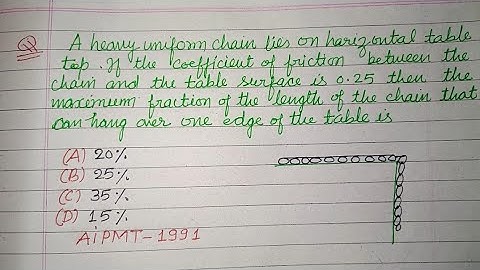 Q A heavy uniform chain lies on harizontal table
top. If the coefficient of friction between the
chain and the table surface is 0.25 then the
maximum fraction of the length of the chain that
can hang over one edge of the table is
(A) 20%
(B) 25%
(C) 35%
(D) 15%
AiPMT-1991